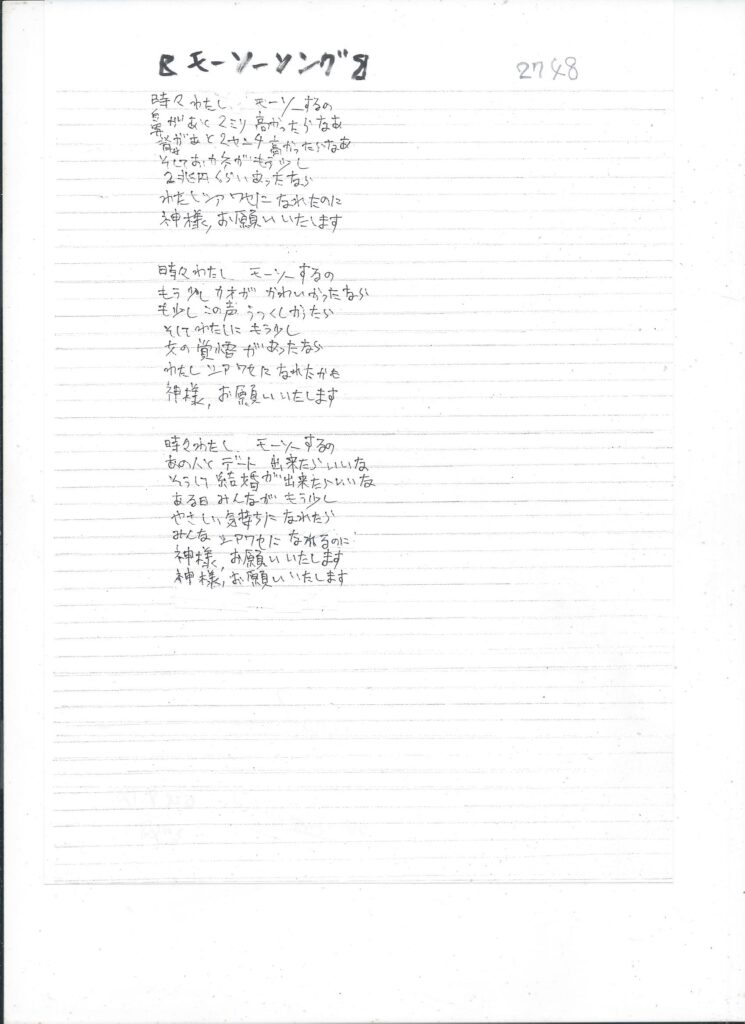 《モーソーソング》 2748
時々わたし モーソーするの
鼻があと2ミリ高かったらなあ
背があと2センチ高かったらなあ
そしておカネがもう少し
2兆円くらいあったなら
わたしシアワセになれたのに
神様、お願いいたします
時々わたし モーソーするの
もう少しカオがかわいかったなら
も少しこの声うつくしかったら
そしてわたしにもう少し
女の覚悟があったなら
わたしシアワセになれたかも
神様、お願いいたします
時々わたし モーソーするの
あの人とデート出来たらいいな
そうして結婚が出来たらいいな
ある日みんながもう少し
やさしい気持ちになれたら
みんなシアワセになれるのに
神様、お願いいたします
神様、お願いいたします